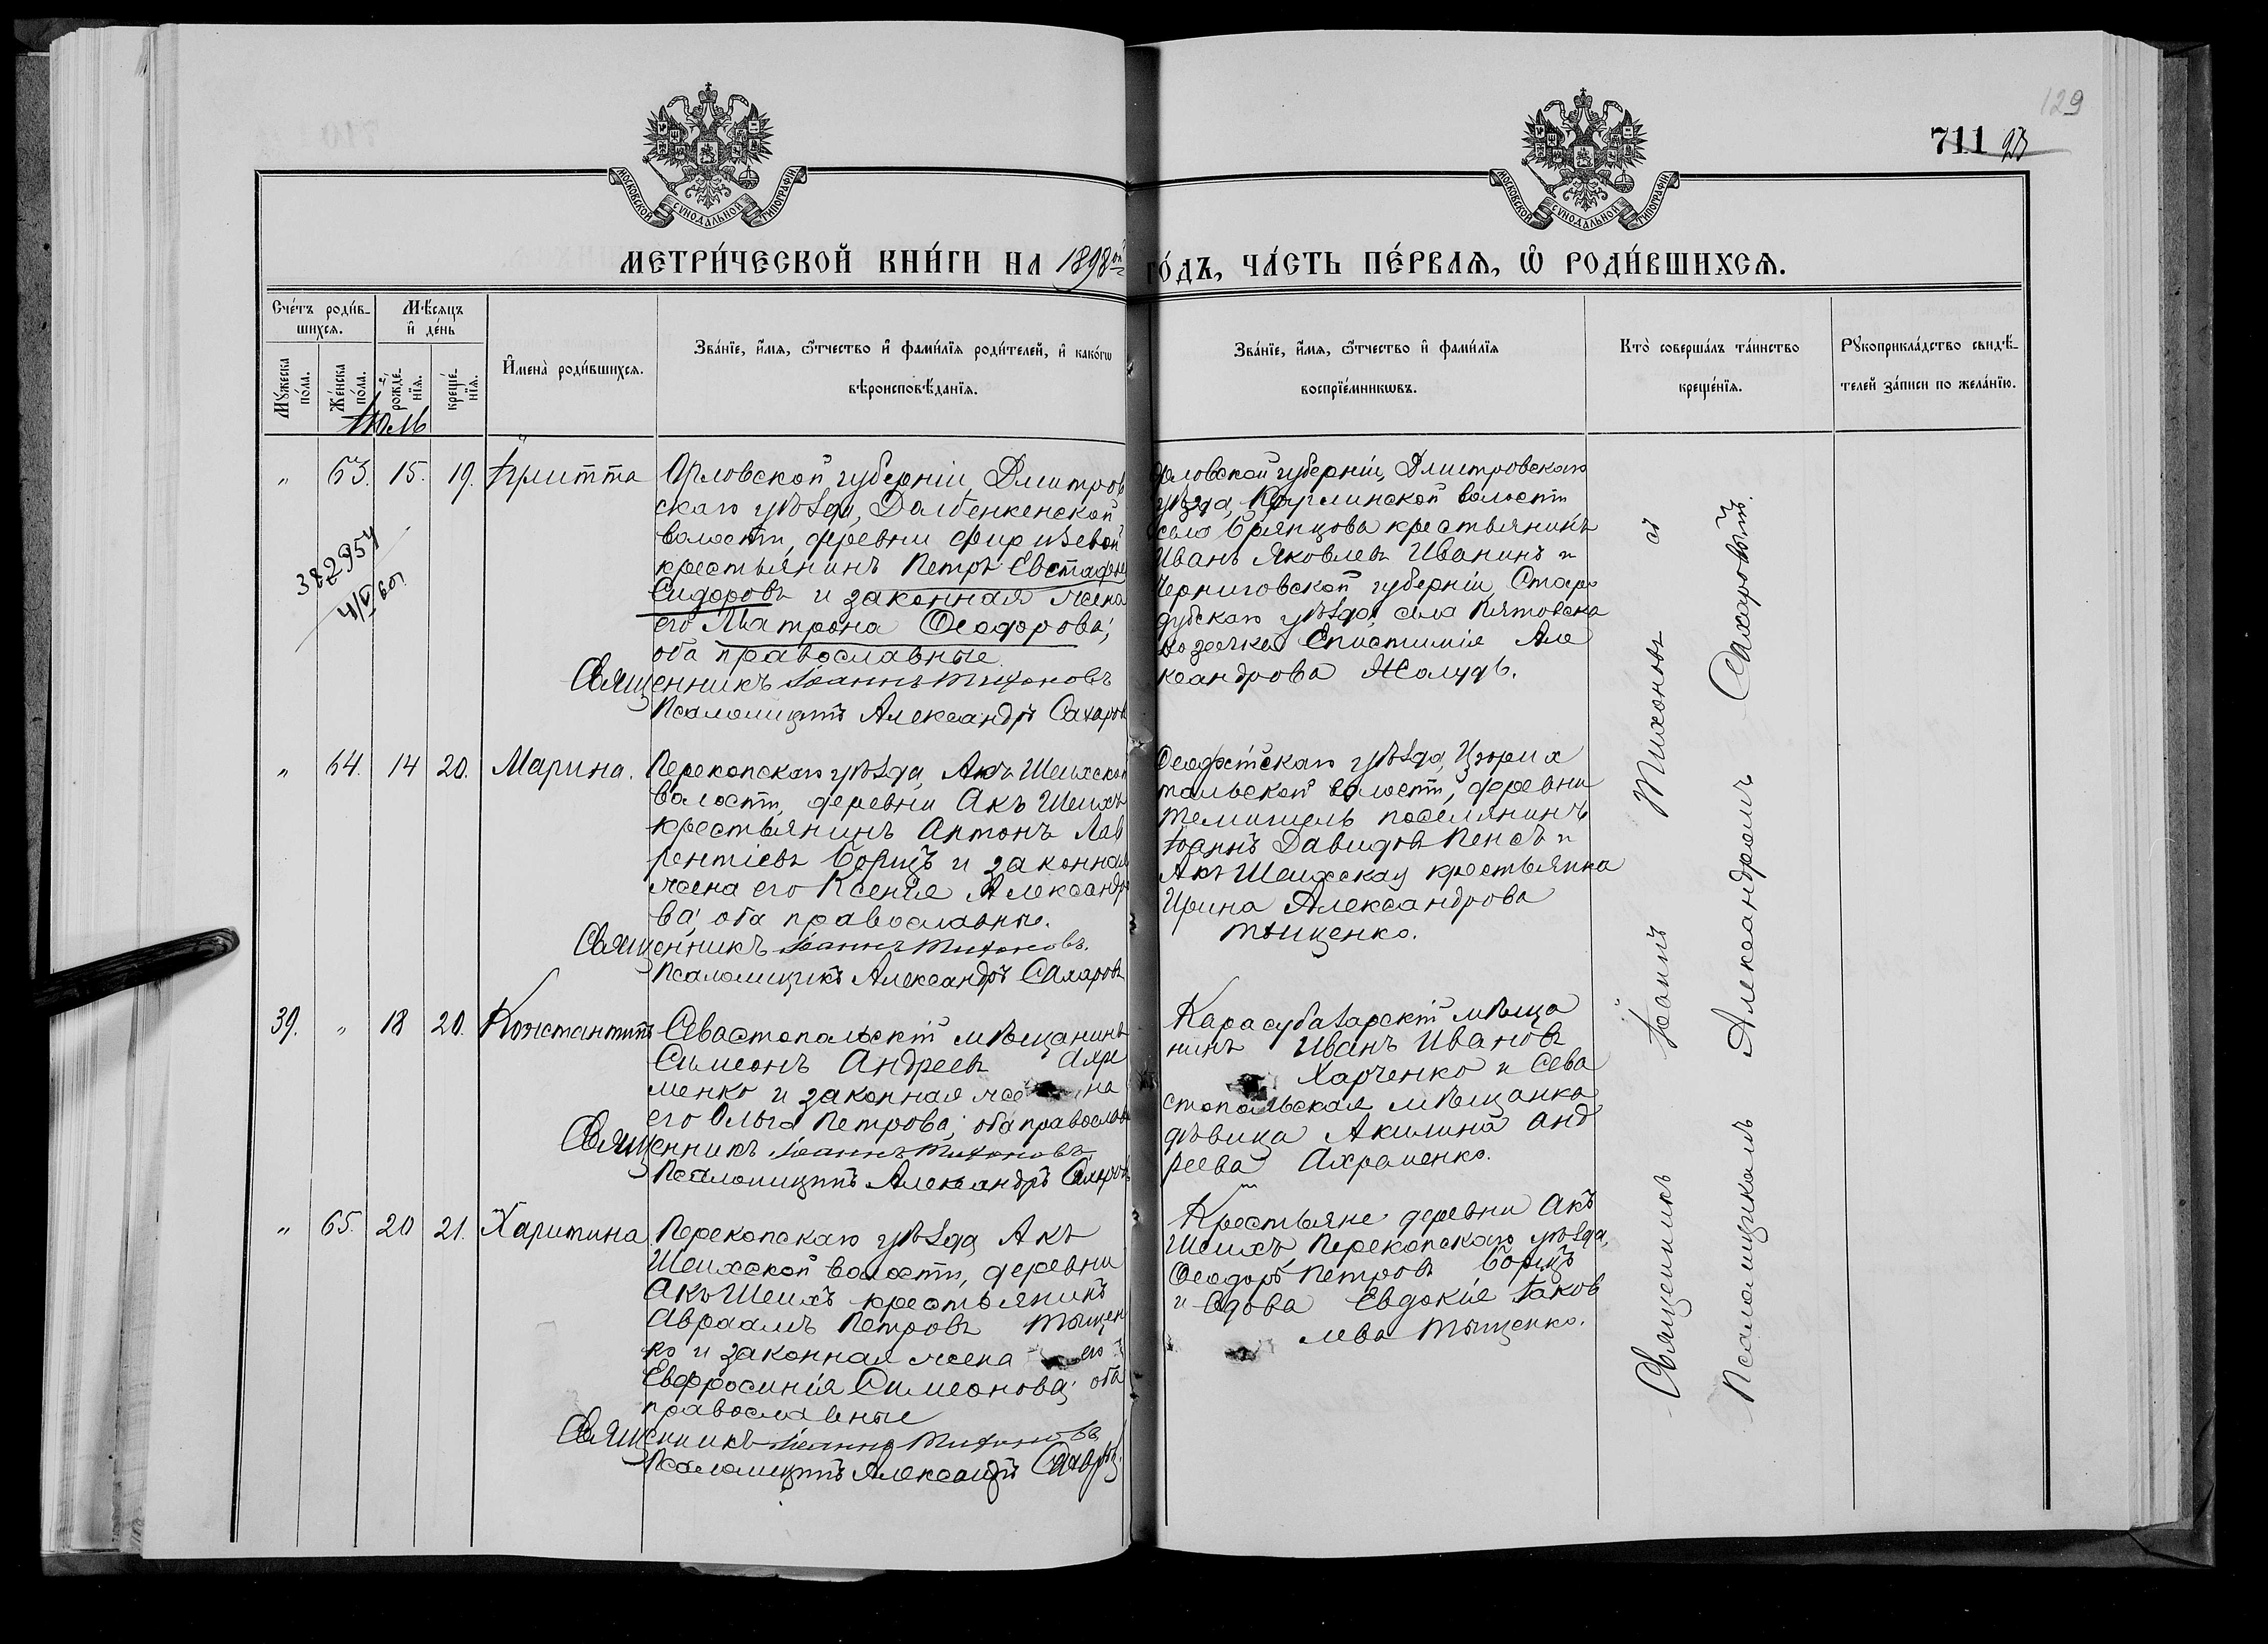 129
711
МОСКОВСКОЙ СѴНОДАЛЬНОЙ ТИПОГРАФІИ
МОСКОВСКОЙ СѴНОДАЛЬНОЙ ТИПОГРАФІИ
МЕТРИ́ЧЕСКОЙ КНИ́ГИ НА 1898ой ГО́ДЪ, ЧА́СТЬ ПЕ́РВАЯ, Ѡ РОДИ́ВШИХСЯ.
Сче́тъ роди́в-
шихся.
Мѣ́сяцъ
и҆ де́нь
Мꙋ́жеска
по́ла.
Же́нска
по́ла.
рожде́-
нїя.
креще́-
нїя.
И҆мена̀ роди́вшихся.
Зва́нїе, и҆́мя, ѻ҆́тчество и҆ фами́лїя роди́телей, и҆ како́гѡ
вѣроисповѣ́данїя.
Зва́нїе, и҆́мя, ѻ҆́тчество и҆ фами́лїя
воспрїе́мникѡвъ.
Кто̀ соверша́лъ та́инство
креще́нїя.
Рꙋкоприкла́дство свидѣ́-
телей за́писи по жела́нїю.
Іюль
" 63. 15. 19. Іулитта
Орловской губерніи, Дмитров
скаго уѣзда, Долбенкенской
волости, деревни Фирсѣевой
крестьянинъ Петръ Евстафьев
Сидоровъ и законная жена
его Матрона Ѳеодорова;
оба православные.
Священникъ Іоаннъ Тихоновъ
Псаломщикъ Александръ Сахаровъ
382954
4/V 60г
Орловской губерніи, Дмитровскаго
уѣзда, волости
село Брянцова крестьянинъ
Иванъ Яковлевъ Иванинъ и
Черниговской губерніи Старо
дубскаго уѣзда, села Пятовска
козачка Епистимія Але
ксандрова Жолудь.
" 64. 14 20. Марина.
Перекопскаго уѣзда, Акъ Шеихской
волости, деревни Акъ Шеихъ
крестьянинъ Антонъ Лав
рентіевъ Борщъ и законная
жена его Ксенія Александро
ва; оба православные.
Священникъ Іоаннъ Тихоновъ.
Псаломщикъ Александръ Сахаровъ
Ѳеодосійскаго уѣзда, Цюрих
тальской волости, деревни
поселянинъ
Іоаннъ Давидовъ и
Акъ Шеихская крестьянка
Ирина Александрова
Тыщенко.
39. " 18 20. Константинъ
Севастопольскій мѣщанинъ
Симеонъ Андреевъ Ахре
менко и законная жена
его Ольга Петрова; оба православн
Священникъ Іоаннъ Тихоновъ
Псаломщикъ Александръ Сахаровъ
Карасубазарскій мѣща
нинъ Иванъ Ивановъ
Харченко и Сева
стопольская мѣщанка
дѣвица Акилина Анд
реева Ахраменко.
" 65. 20 21. Харитина
Перекопскаго уѣзда, Акъ
Шеихской волости, деревни
Акъ Шеихъ крестьянинъ
Авраамъ Петровъ Тыщен
ко и законная жена его
Евфросинія Симеонова; оба
православные
Священникъ Іоаннъ Тихоновъ
Псаломщикъ Александръ Сахаровъ
Крестьяне деревни Акъ
Шеихъ Перекопскаго уѣзда,
Ѳеодоръ Петровъ Борщъ
и вдова Евдокія Іаков
лева Тыщенко.
Священникъ Іоаннъ Тихоновъ съ
Псаломщикомъ Александромъ Сахаровымъ.